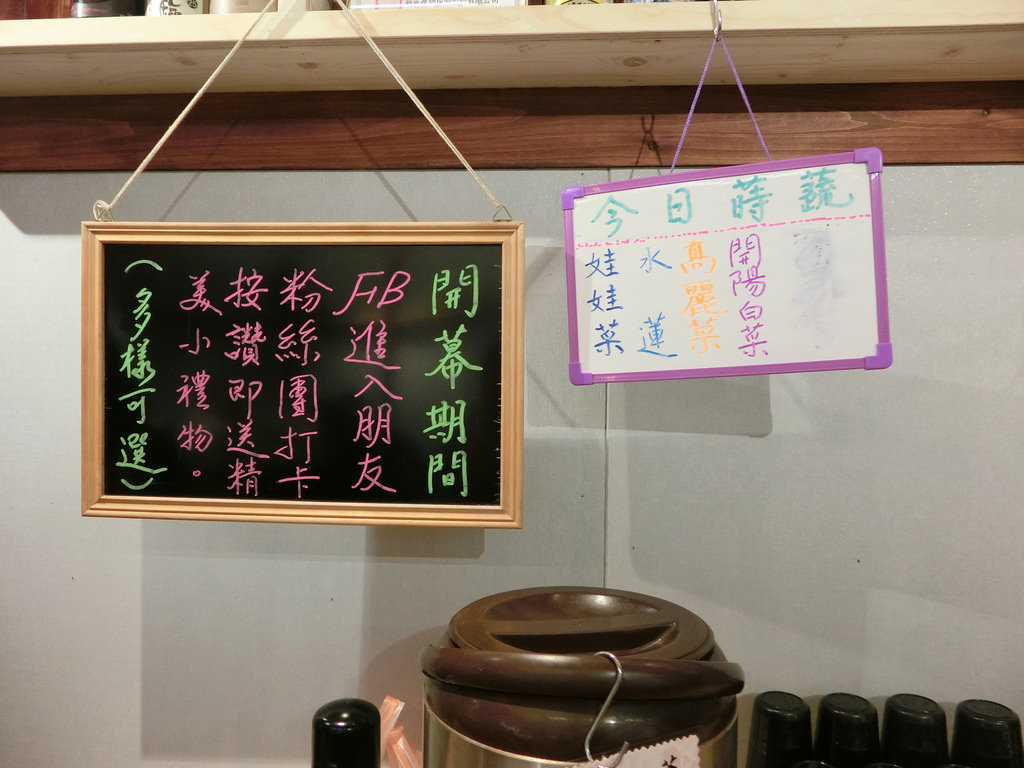 開幕期間
FB進入朋友
粉絲團打卡
按讚即送精
美小禮物。
（多樣可選）
今日蒔蔬
開陽白菜
高麗菜
水蓮
娃娃菜